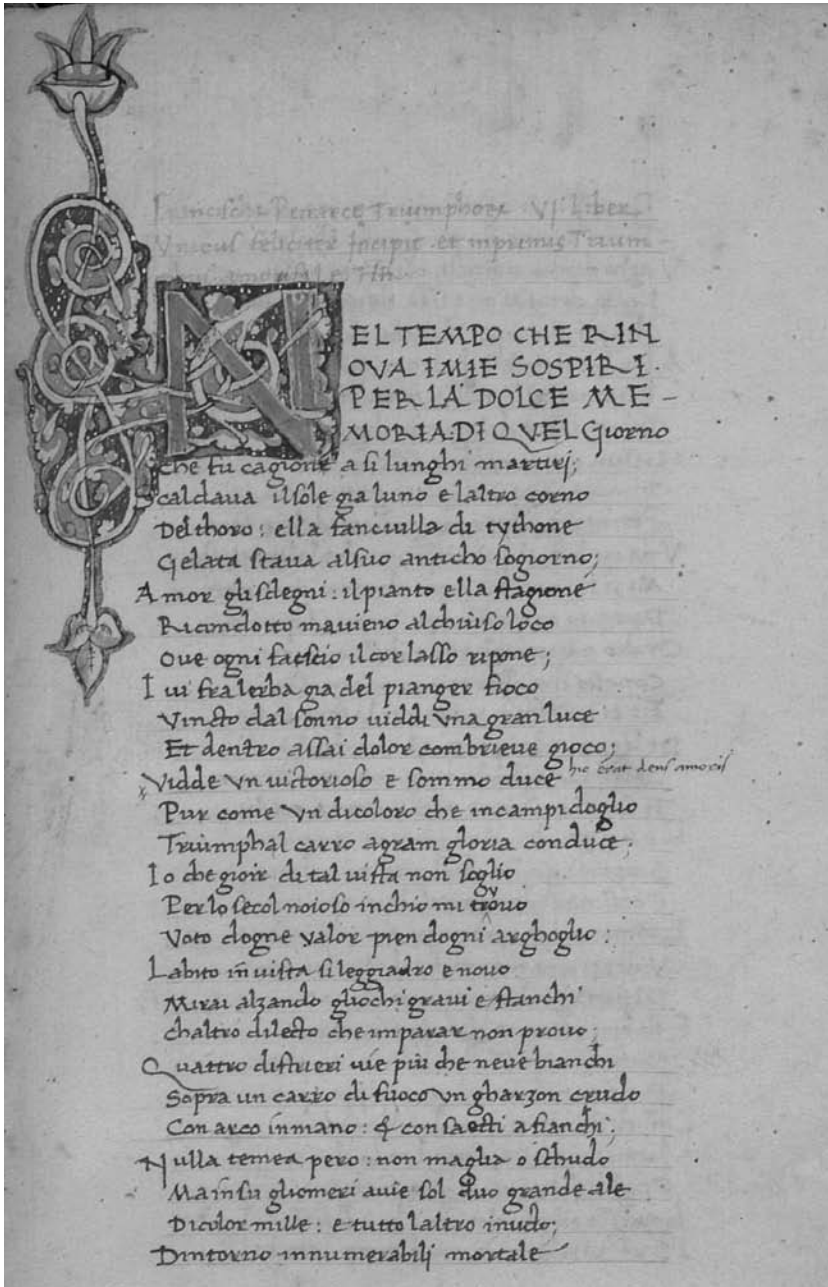 Francisci Petrarce Triumphorum VI Liber
Unicus feliciter Incipit et inprimis Trium
NEL TEMPO CHE RIN
OVA IMIE SOSPIRI.
PER LA DOLCE ME-
MORIA DI QVEL Giorno
Che fu cagione a si lunghi martirj;
Caldaua ilsole gia luno e laltro corno
Del thoro: ella fanciulla di tythone
Gelata staua alsuo anticho sogiorno;
Amor gli sdegni: ilpianto ella stagione
Ricondotto mauieno alchiuso loco
Oue ogni fascio ilcor lasso ripone;
Iui fralerba gia del pianger fioco
Vincto dal sonno uiddi vna gran luce
Et dentro assai dolor combrieue gioco;
Vidde vn uictorioso e sommo duce hic erat deus amoris
Pur come vn dicoloro che incampidoglio
Triumphal carro agram gloria conduce;
Io che gioir di tal uista non soglio
Per lo secol noioso inchio mi trouo
Voto dogne valor pien dogni arghoglio:
Labito in uista si leggiadro e nouo
Mirai alzando gliochi graui e stanchi
Chaltro dilecto che imparar non prouo;
Quattro distrieri uie più che neue bianchi
Sopra un carro di fuoco vn gharzon crudo
Con arco inmano: & con saecti afianchi;
Nulla temea pero: non maglia o schudo
Ma insu gliomeri auie sol duo grande ale
Dicolor mille: e tutto laltro inudo;
Dintorno innumerabilj mortale